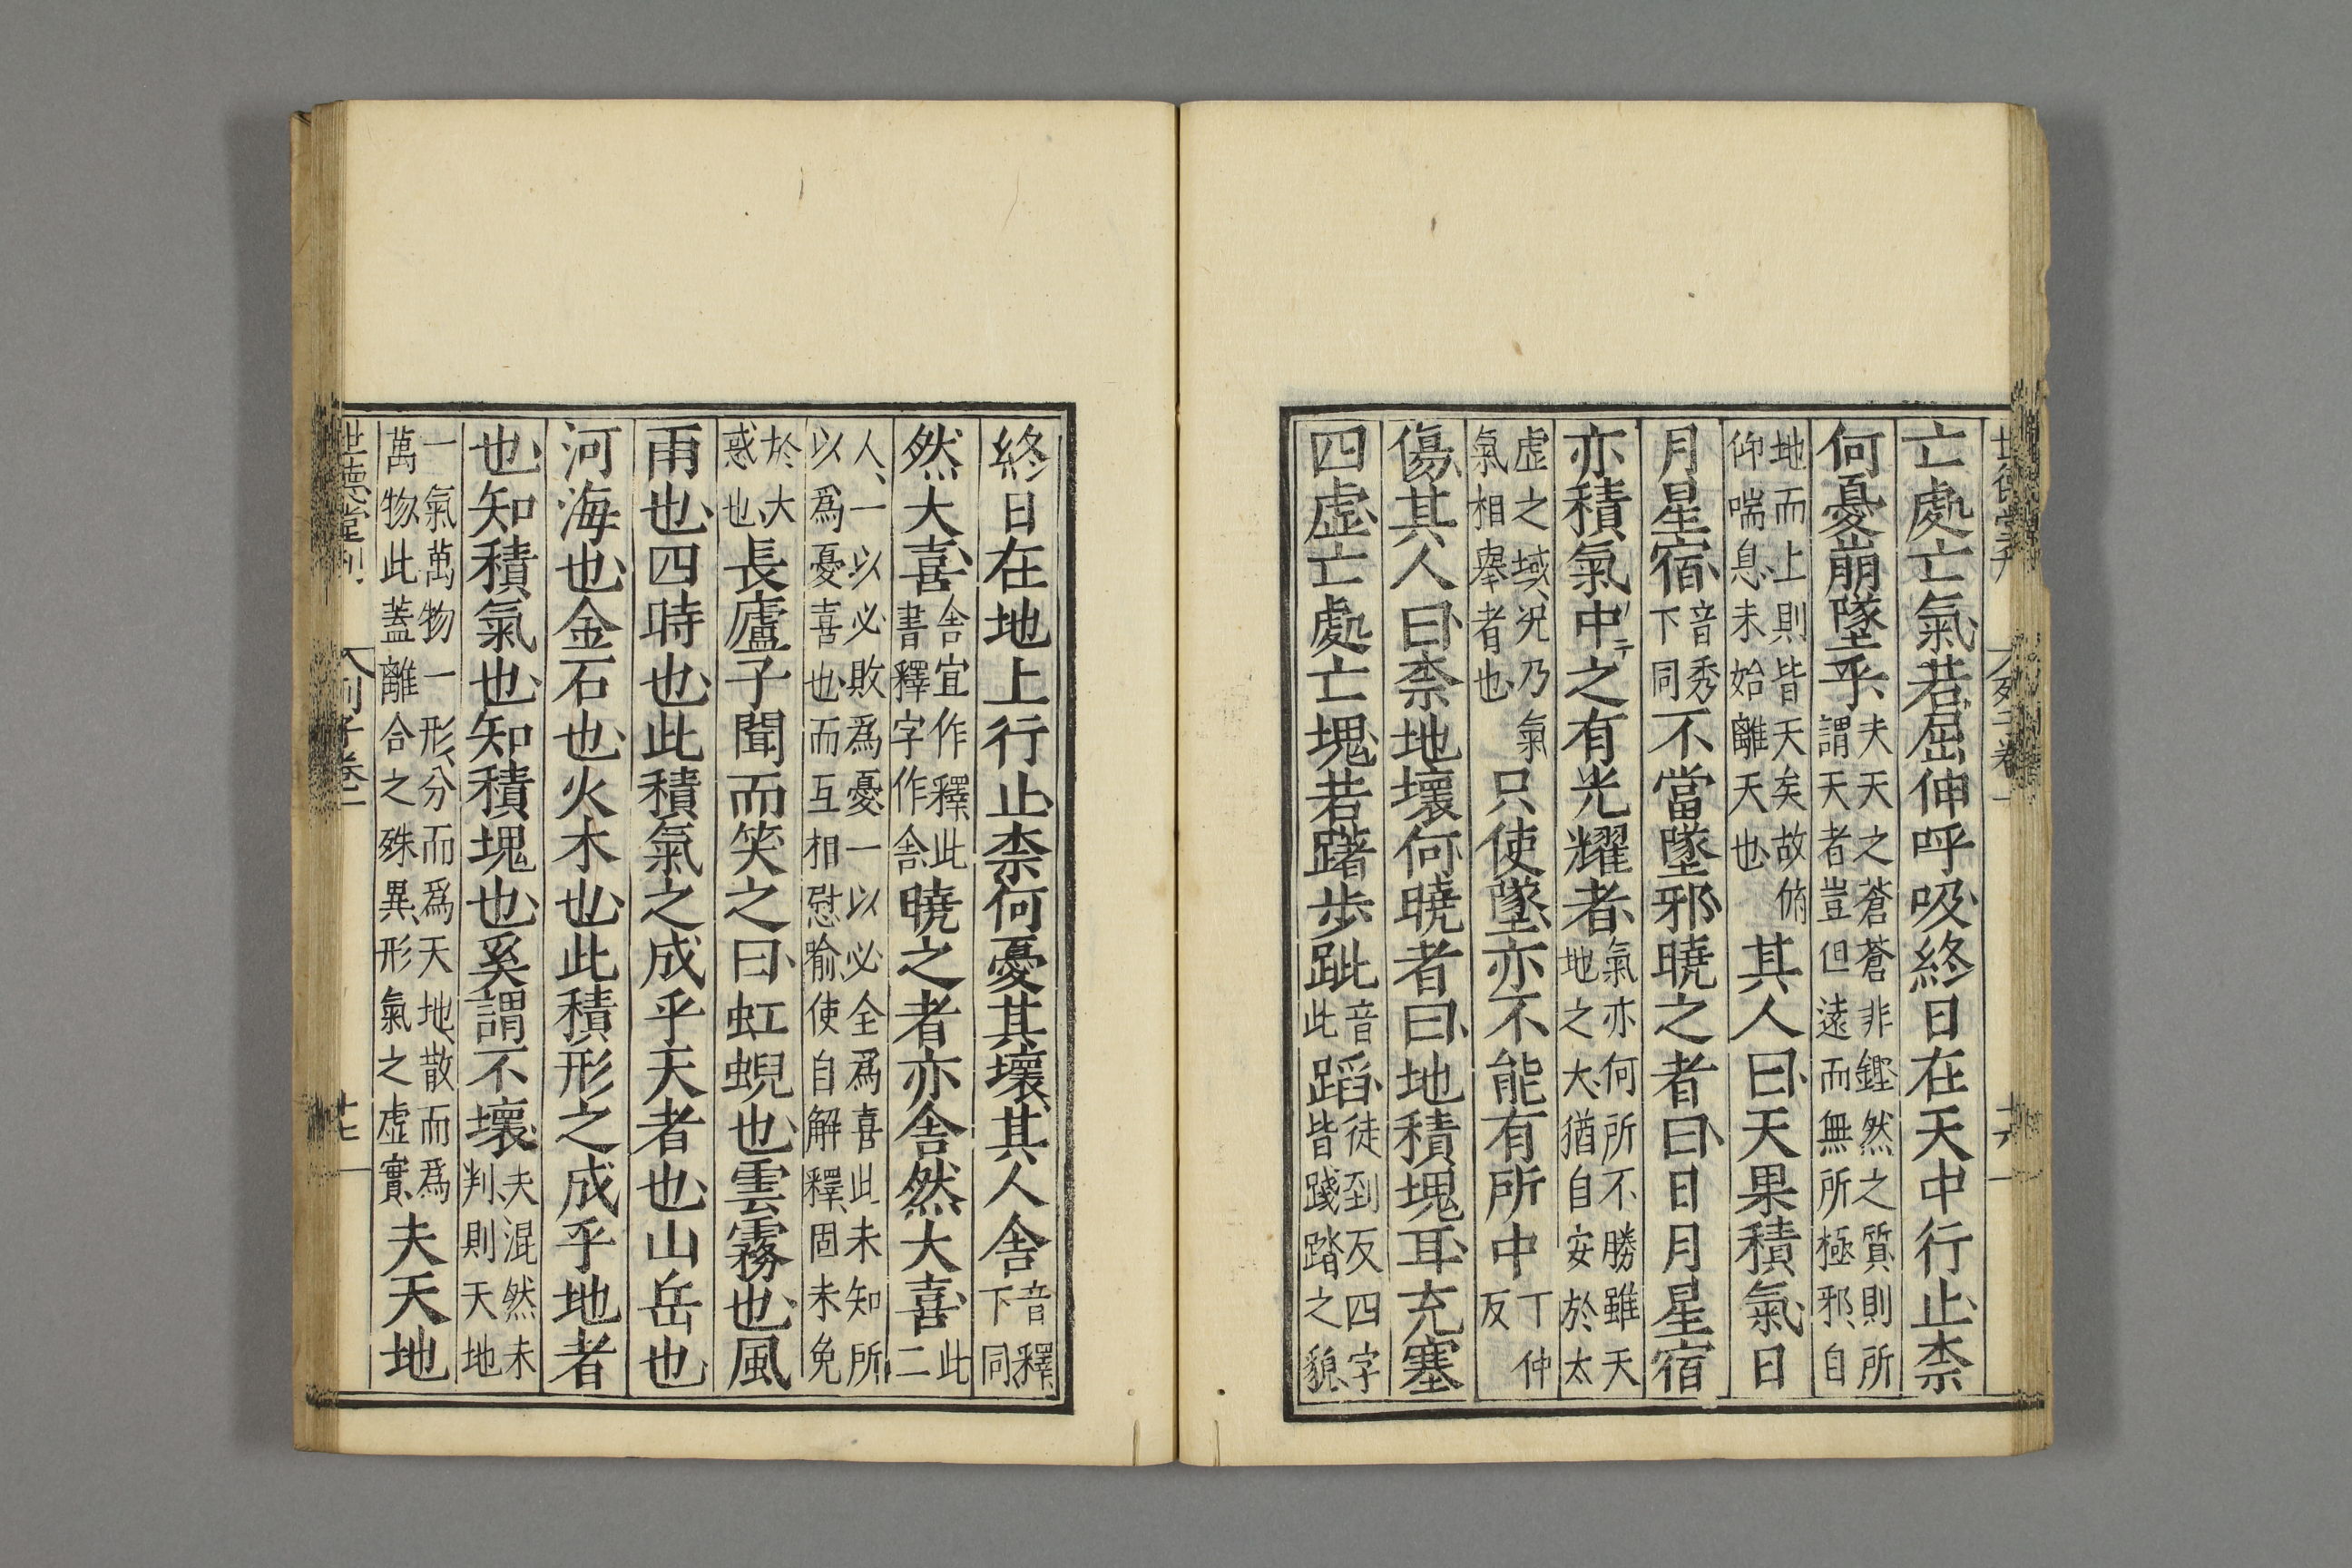 亡處亡氣若屈伸呼吸終日在天中行止柰
何憂崩墜乎夫天之蒼蒼非鏗然之質則所謂天者豈但遠而無所極邪自
地而上則皆天矣故俯仰喘息未始離天也其人曰天果積氣日
月星宿音秀下同不當墜邪曉之者曰日月星宿
亦積氣中之有光耀者氣亦何所不勝雖天地之大猶自安於太
虛之域況乃氣氣相舉者也只使墜亦不能有所中丁仲反
傷其人曰柰地壞何曉者曰地積塊耳充塞
四虛亡處亡塊若躇步跐音此蹈徒到反四字皆踐踏之貌
終日在地上行止柰何憂其壞其人舍音釋下同
然大喜舍宜作釋此書釋字作舍曉之者亦舍然大喜此二
人一以必敗爲憂一以必全爲喜此未知所以爲憂喜也而互相慰喻使自解釋固未免
於大惑也長廬子聞而笑之曰虹蜺也雲霧也風
雨也四時也此積氣之成乎天者也山岳也
河海也金石也火木也此積形之成乎地者
也知積氣也知積塊也奚謂不壞夫混然未判則天地
一氣萬物一形分而爲天地散而爲萬物此蓋離合之殊異形氣之虛實夫天地
世德堂刊 列子卷一 十七